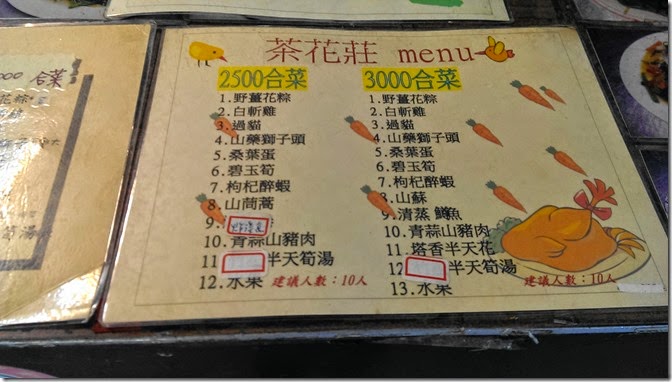 茶花莊 menu
2500合菜
1.野薑花粽
2.白斬雞
3.過貓
4.山藥獅子頭
5.桑葉蛋
6.碧玉筍
7.枸杞醉蝦
8.山茼蒿
9.
10.青蒜山豬肉
11 半天筍湯
12.水果 建議人數：10人
3000合菜
1.野薑花粽
2.白斬雞
3.過貓
4.山藥獅子頭
5.桑葉蛋
6.碧玉筍
7.枸杞醉蝦
8.山蘇
9.清蒸 鱒魚
10.青蒜山豬肉
11.塔香半天花
12 半天筍湯
13.水果 建議人數：10人
000 合菜
花粽
筍湯